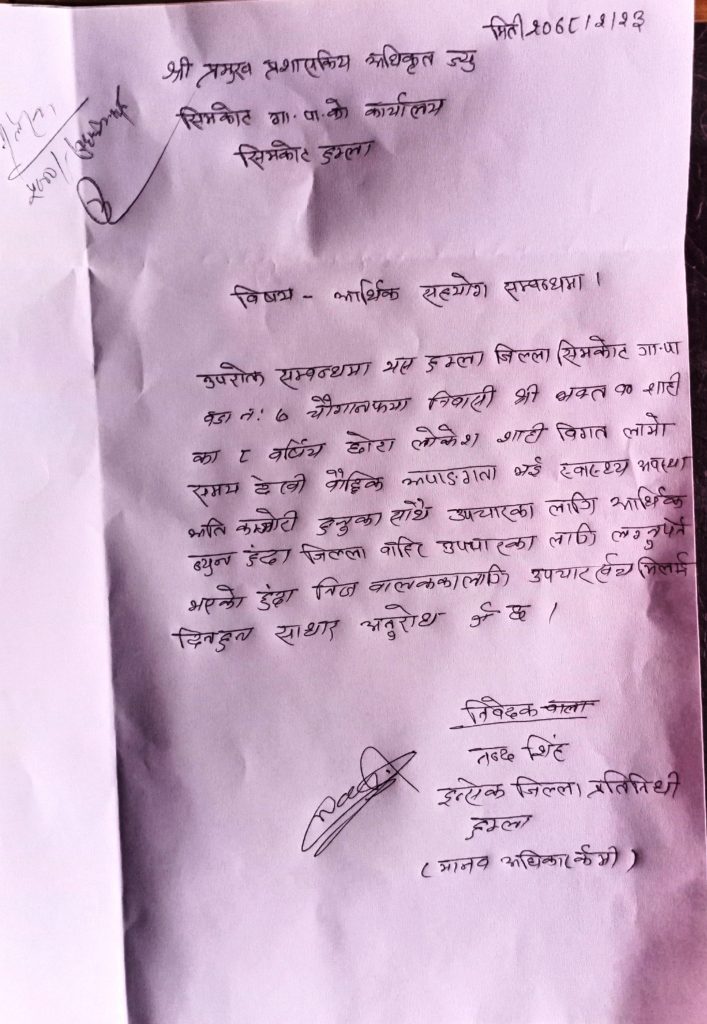 मिती २०७८।२।२३
श्री प्रमुख प्रशासकिय अधिकृत ज्यु
सिमकोट गा.पा.को कार्यालय
सिमकोट हुम्ला
विषय - आर्थिक सहयोग सम्बन्धमा ।
उपरोक्त सम्बन्धमा यस हुम्ला जिल्ला सिमकोट गा.पा
वडा नं: ७ निवासी श्री भक्त ब० शाही
का ८ बर्षिय छोरा लोकेश शाही विगत लामो
समय देखी वौद्दिक अपाङगता भई स्वास्थ्य अवस्था
अति कम्जोरी हुनुका साथै उपचारका लागि आर्थिक
हुंदा जिल्ला वाहिर उपचारका लागि लग्नुपर्ने
भएको हुंदा निज वालककालागि उपचार खर्च
दिनहुन साधार अनुरोध छ ।
निवेदक
नन्द सिंह
इन्सेक जिल्ला प्रतिनिधी
हुम्ला
(मानव अधिकारकर्मी)